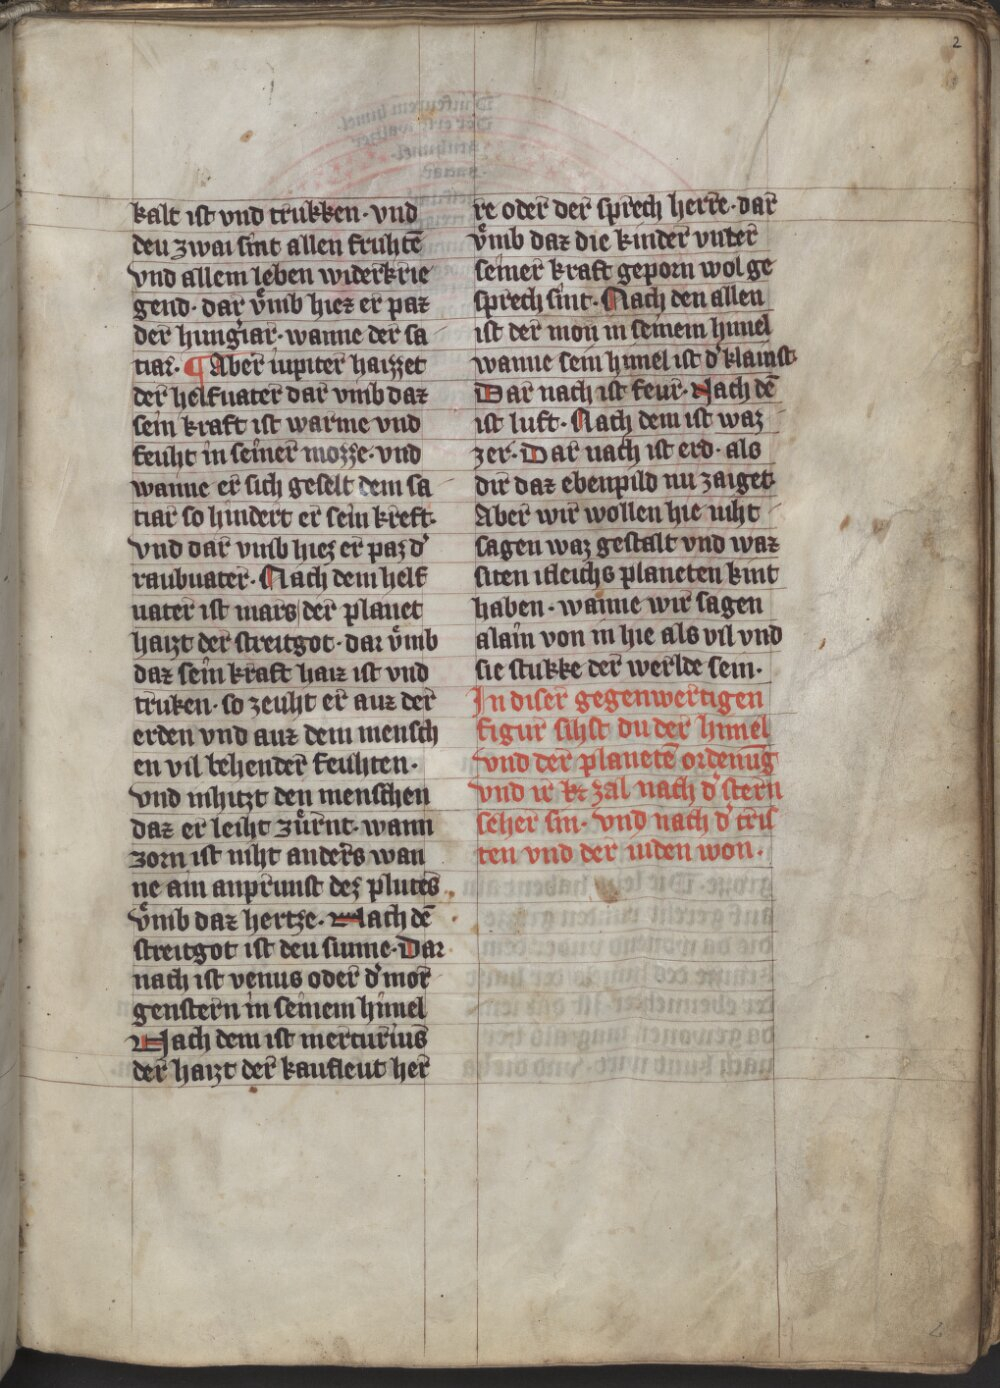 2
kalt ist vnd trukken · vnd
deu zwai sint allen fruhtē
vnd allem leben widerkrie
gend · dar vͤmb hiez er paz
der hungiar · wanne der sa
tiar · ¶ Aber iupiter haizzet
der helfuater dar vmb daz
sein kraft ist warme vnd
feuht in seiner mozze · vnd
wanne er sich geselt dem sa
tiar so hindert er sein kreft ·
vnd dar vmb hiez er paz d᾽
raubuater · Nach dem helf
uater ist mars der planet
haizt der streitgot · dar vͤmb
daz sein kraft haiz ist vnd
truken · so zeuht er auz der
erden vnd auz dem mensch
en vil behender feuhten ·
vnd inhitzt den menschen
daz er leiht zuͤrnt · wann
zorn ist niht anders wan
ne ain anprunst dez plutes
vͤmb daz hertze · Nach dē
streitgot ist deu sunne · Dar
nach ist venus oder d᾽ mor
genstern in seinem himel
Nach dem ist mercurius
der haizt der kaufleut her
re oder der sprech herre · dar
vͤmb daz die kinder vnder
seiner kraft geporn wol ge
sprech sint · Nach den allen
ist der mon in seinem himel
wanne sein himel ist d᾽ klainst
Dar nach ist feur · Nach dē
ist luft · Nach dem ist waz
zer · Dar nach ist erd · als
dir daz ebenpild nu zaiget ·
Aber wir wollen hie niht
sagen waz gestalt vnd waz
siten itleichs planeten kint
haben · wanne wir sagen
alain von in hie als vil vnd
sie stukke der werlde sein ·
In diser gegenwertigen
figur sihst du der himel
vnd der planetē ordenūg
vnd ir zal nach d᾽ stern
seher sin · vnd nach d᾽ cris
ten vnd der iuden won ·
2